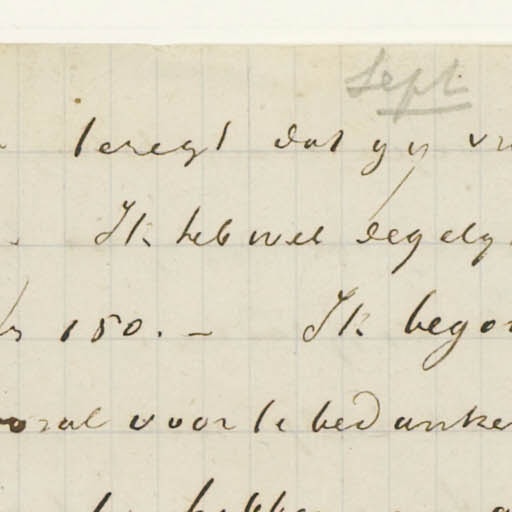 Sept
teregt dat gij
Ik heb wel degelij
150. — Ik begon
vooral voor te bedanken
hebben